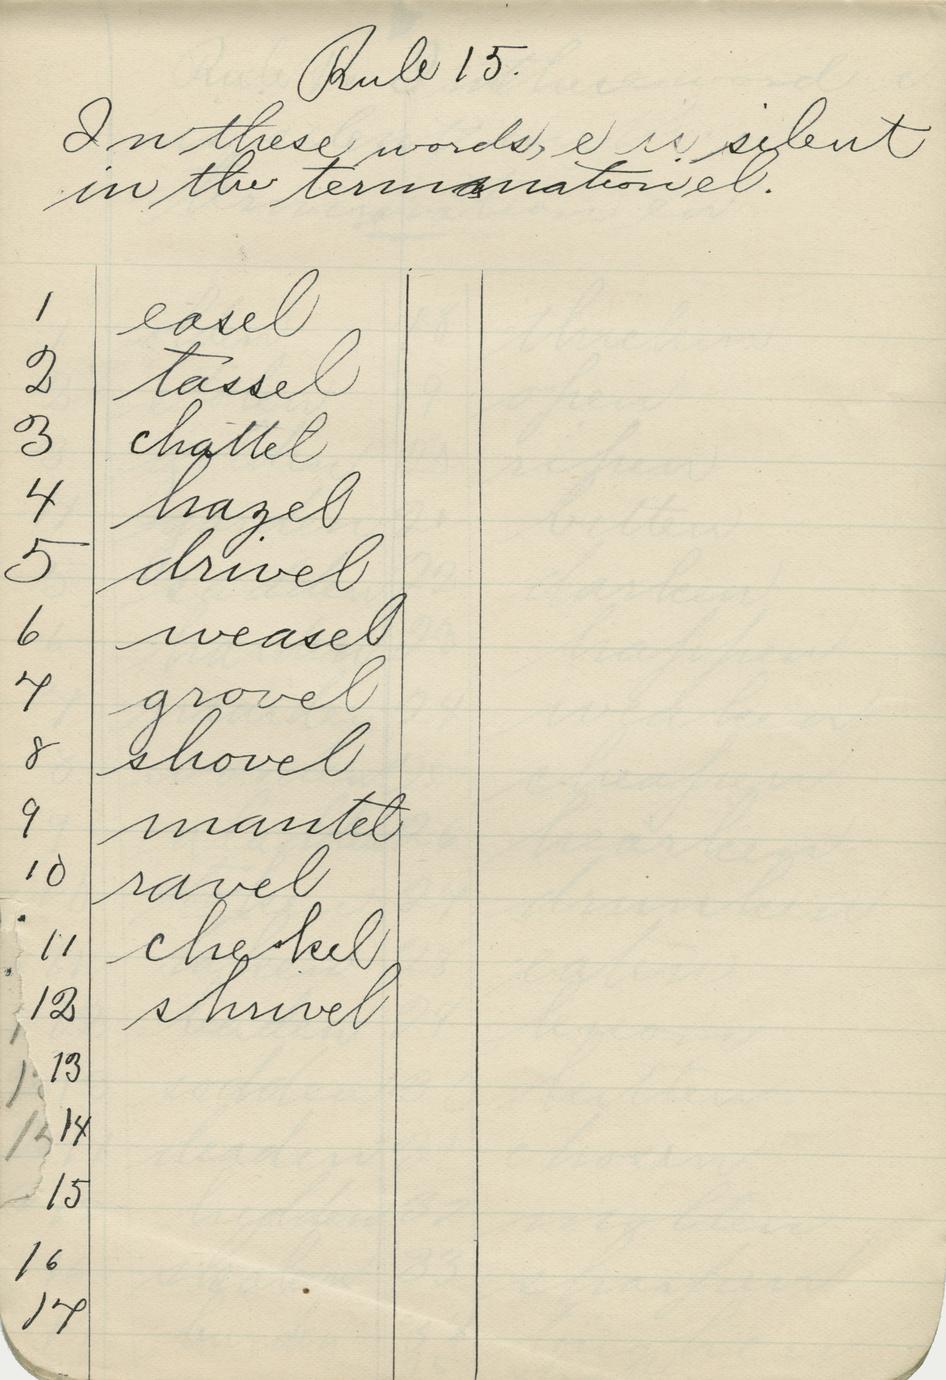 Rule 15.
In these words, e is silent
in the termanation el.
1 easel
2 tassel
3 chattel
4 hazel
5 drivel
6 weasel
7 grovel
8 shovel
9 mantel
10 ravel
11
12 shrivel
13
14
15
16
17